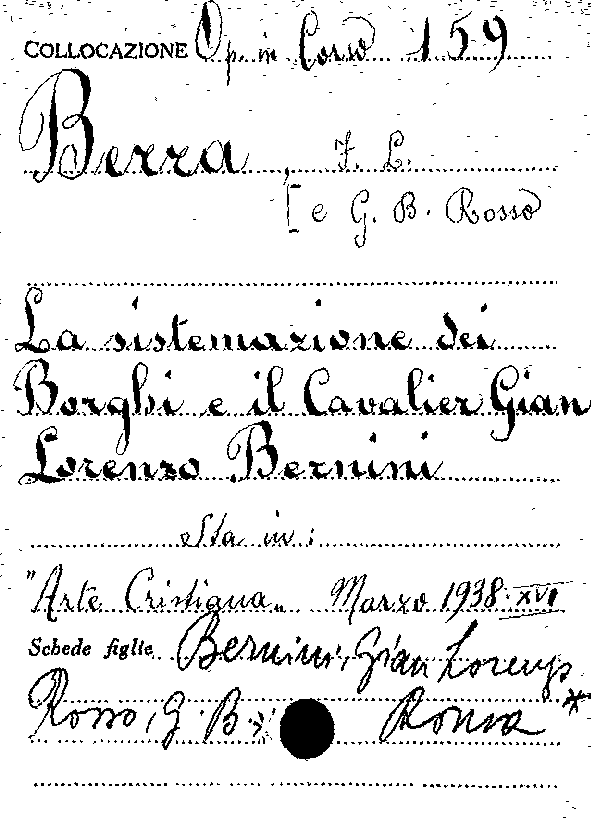 COLLOCAZIONE Op. in Corso 159
Berra, F. L.
[e G. B. Rosso
La sistemazione dei
Borghi e il Cavalier Gian
Lorenzo Bernini
Sta in:
"Arte Cristiana" Marzo 1938-XVI
Schede figlie Bernini, Gian Lorenzo
Rosso, G. B. * Roma *